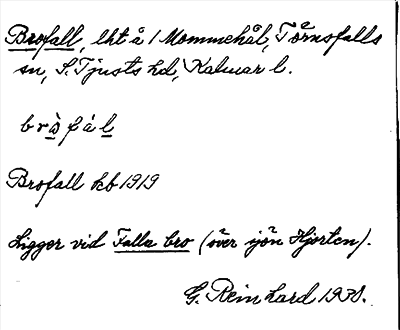 Brofall, lht å 1 Mommehål, Törnsfalls
sn, S. Tjusts hd, Kalmar l.
bròfàl
Brofall kb 1919
Ligger vid Falla bro (över sjön Hjorten).
G. Reinhard 1930.